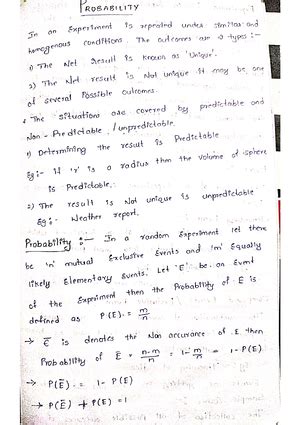 PROBABILITY
In an Experiment is repeated under similar and
homogenous conditions. The outcomes are 2 types :-
1) The Net Result is known as 'Unique'.
2) The Net result is Not unique it may be one
of several Possible outcomes.
The Situations are covered by predictable and
Non - Predictable / unpredictable.
1) Determining the result is Predictable
Eg :- If 'r' is a radius then the volume of sphere
is Predictable.
2) The result is Not unique is unpredictable
Eg :- Weather report.
Probability :- In a random Experiment let there
be 'n' mutual Exclusive Events and 'm' Equally
likely Elementary Events. Let 'E' be an Event
of the Experiment then the Probability of E is
defined as P(E) = m/n
→ E̅ is denotes the Non accurance of E. then
Probability of E̅ = n-m/n = 1-m/n = 1-P(E)
→ P(E̅) = 1 - P(E)
→ P(E̅) + P(E) = 1